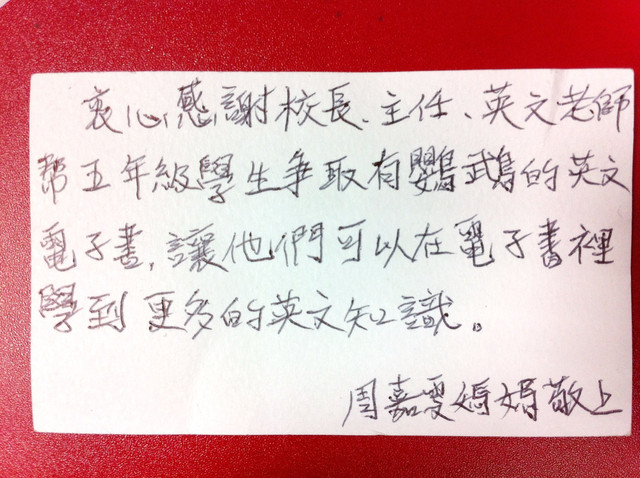 衷心感謝校長、主任、英文老師
幫五年級學生爭取有鸚鵡的英文
電子書,讓他們可以在電子書裡
學到更多的英文知識。
周嘉雯媽媽敬上